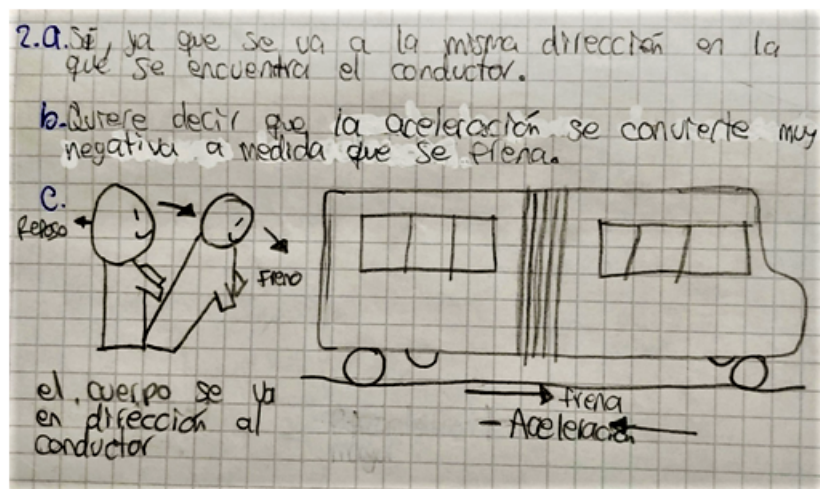 2.a. Sí, ya que se va a la misma dirección en la
que se encuentra el conductor.
b. Quiere decir que la aceleración se convierte muy
negativa a medida que se frena.
c.
Reposo
Freno
el cuerpo se va
en dirección al
conductor
frena
- Aceleración